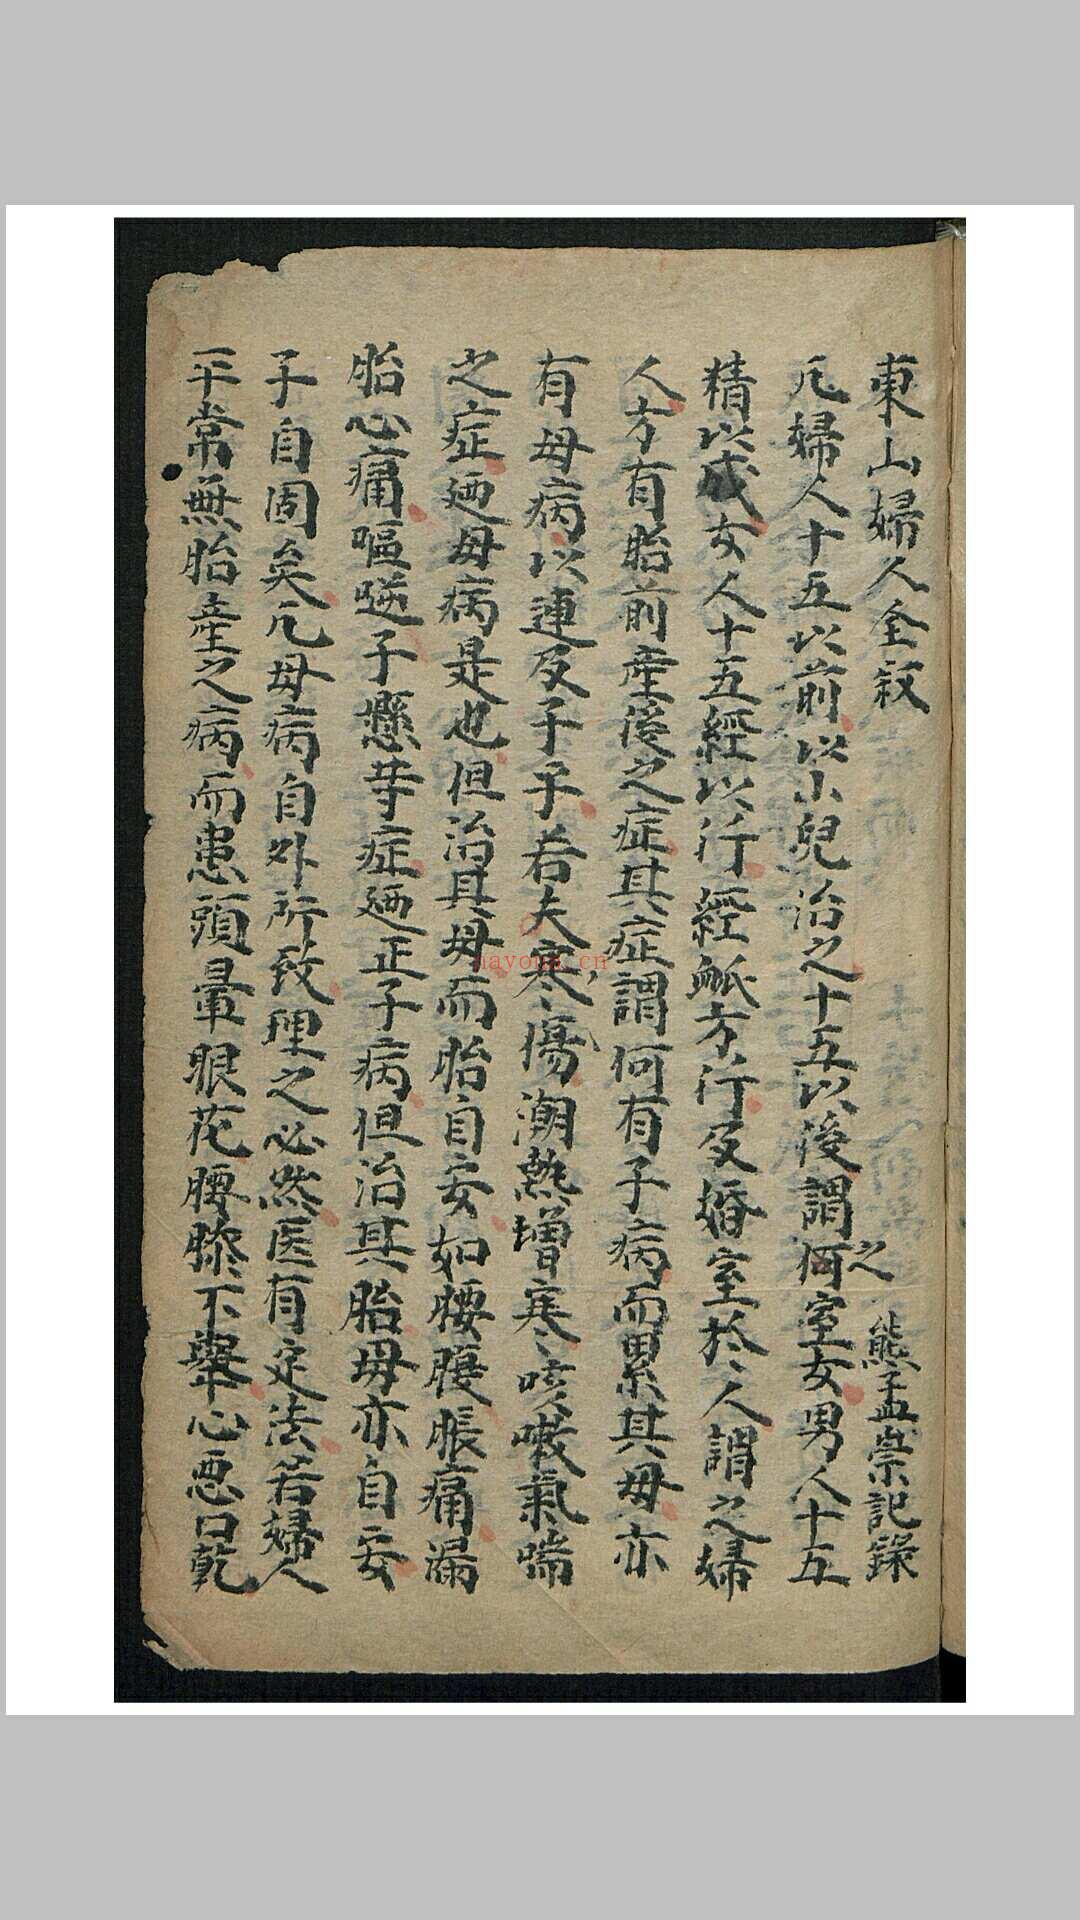 東山婦人全叙 熊孟崇記錄
凡婦人十五以前以小兒治之十五以後謂之何室女男人十五
精以成女人十五經以行經脈方行及婚室於人謂之婦
人方有胎前產後之症其症謂何有子病而累其母亦
有母病以連及子子若夫寒傷潮熱增寒咳嗽氣喘
之症廼母病是也但治其母而胎自安如腰腹脹痛漏
胎心痛嘔逆子懸等症廼正子病但治其胎母亦自安
子自固矣凡母病自外所致理之必然医有定法若婦人
平常無胎產之病而患頭暈眼花腰膝不舉心悪口乾
nayona.cn